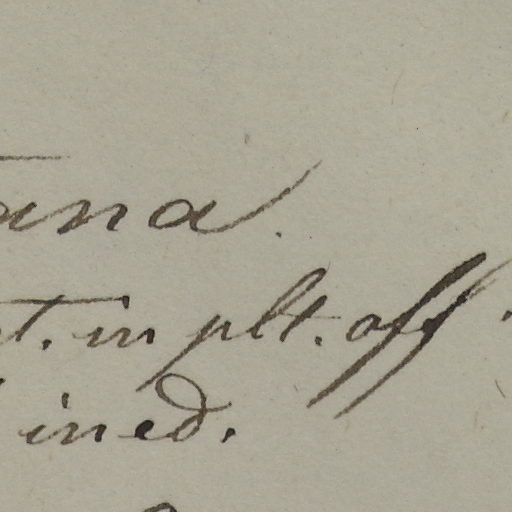 ana.
t. in plt. off.
ined.